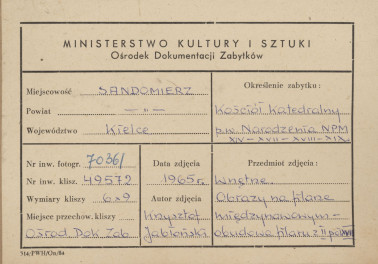 MINISTERSTWO KULTURY I SZTUKI
Ośrodek Dokumentacji Zabytków
Miejscowość SANDOMIERZ
Powiat — „ —
Województwo Kielce
Określenie zabytku:
Kościół Katedralny
p.w. Narodzenia NPM
XIV-XV-XVIII-XIX
Nr inw. fotogr. 70361
Nr inw. klisz. 49572
Wymiary kliszy 6x9
Miejsce przechow. kliszy
Ośrod Dok Zab
Data zdjęcia
1965r.
Autor zdjęcia
Krzysztof
Jabłoński
Przedmiot zdjęcia:
Wnętrze.
Obrazy na filarze
międzynawowym -
obudowa filaru z II poł XVIII